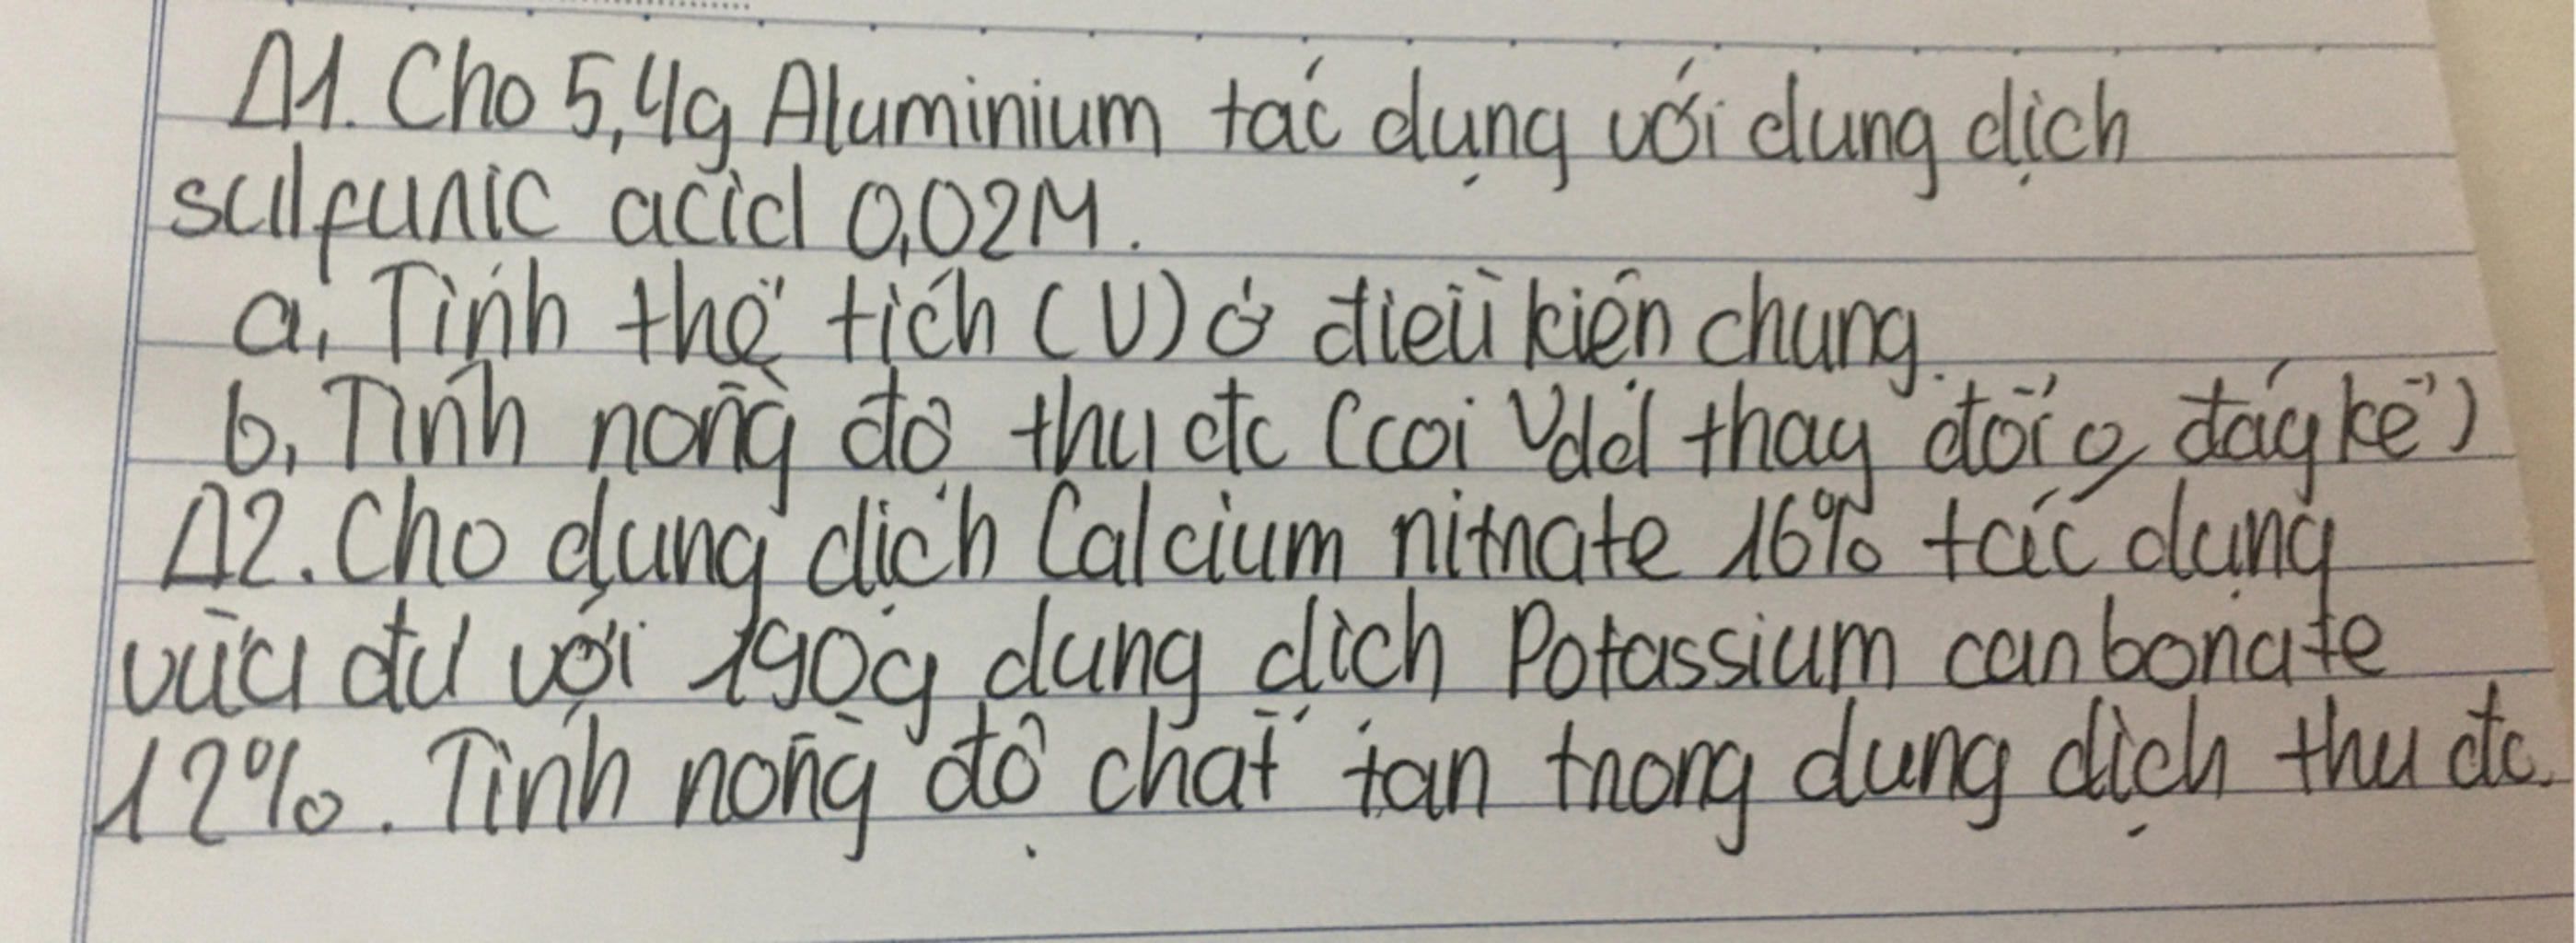 Δ1. Cho 5,4g Aluminium tác dụng với dung dịch
sulfuric acid 0,02M.
a, Tính thể tích (V) ở điều kiện chung.
b, Tính nồng độ thu đc (coi Vdd thay đổi o đáy kể)
Δ2. Cho dung dịch Calcium nitrate 16% tác dụng
vừa đủ với 190g dung dịch Potassium carbonate
12%. Tính nồng độ chất tan trong dung dịch thu đc.